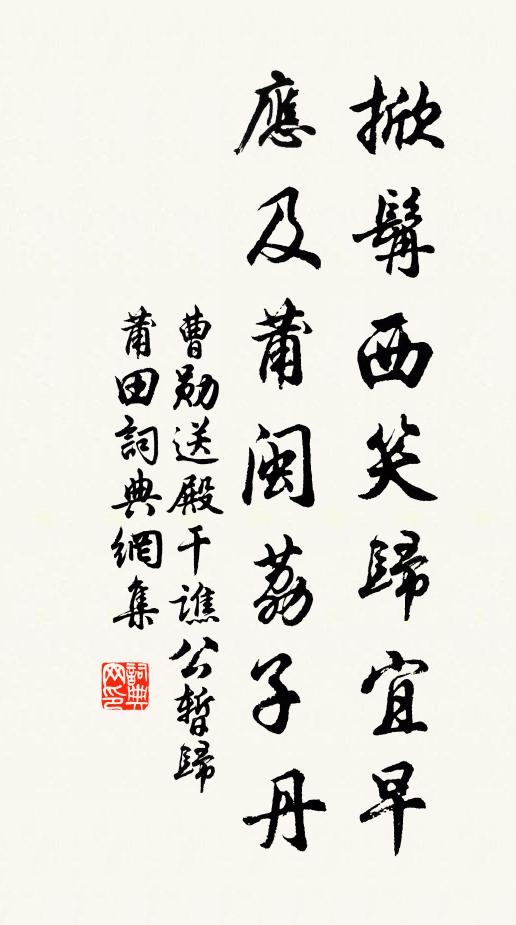 掀髯西笑歸宜早
應及莆閩荔子丹
曹勛送殿干譙公暫歸
莆田詞典網集
詞典網印